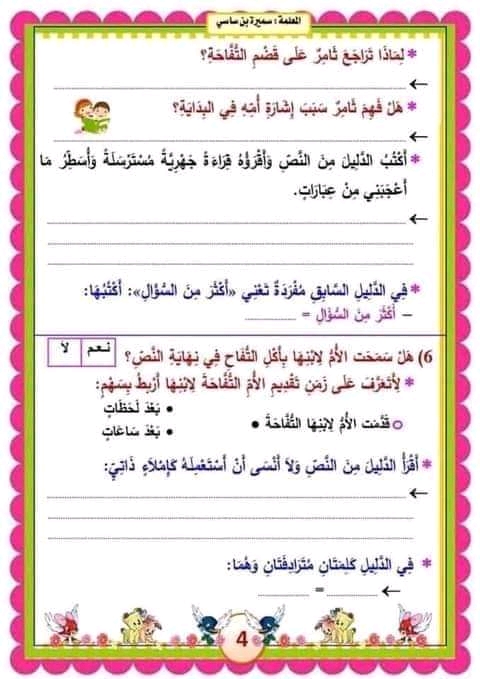 المعلمة : سميرة بن ساسي
* لِمَاذَا تَرَاجَعَ ثَامِرُ عَلَى قَضْمِ التُّفَّاحَةِ؟
* هَلْ فَهِمَ ثَامِرُ سَبَبَ إِشَارَةِ أُمِّهِ فِي البِدَايَةِ؟
* أَكْتُبُ الدَّلِيلَ مِنَ النَّصِّ وَأَقْرَؤُهُ قِرَاءَةً جَهْرِيَّةً مُسْتَرْسَلَةً وَأُسَطِّرُ مَا
أَعْجَبَنِي مِنْ عِبَارَاتٍ.
* فِي الدَّلِيلِ السَّابِقِ مُفْرَدَةٌ تَعْنِي «أَكْثَرَ مِنَ السُّؤَالِ»: أَكْتُبُهَا:
– أَكْثَرَ مِنَ السُّؤَالِ = ............
6) هَلْ سَمَحَت الأُمُّ لِابْنِهَا بِأَكْلِ التُّفَاحِ فِي نِهَايَةِ النَّصِّ؟ نعم لا
* لِأَتَعَرَّفَ عَلَى زَمَنِ تَقْدِيمِ الأُمِّ التُّفَّاحَةَ لِابْنِهَا أَرْبِطُ بِسَهْمٍ:
• بَعْدَ لَحَظَاتٍ
o قَدَّمَت الأُمُّ لِابْنِهَا التُّفَّاحَةَ •
• بَعْدَ سَاعَاتٍ
* أَقْرَأُ الدَّلِيلَ مِنَ النَّصِّ وَلَا أَنْسَى أَنْ أَسْتَعْمِلَهُ كَإِمْلَاءٍ ذَاتِيٍّ:
* فِي الدَّلِيلِ كَلِمَتَانِ مُتَرَادِفَتَانِ وَهُمَا:
............ = ............
4